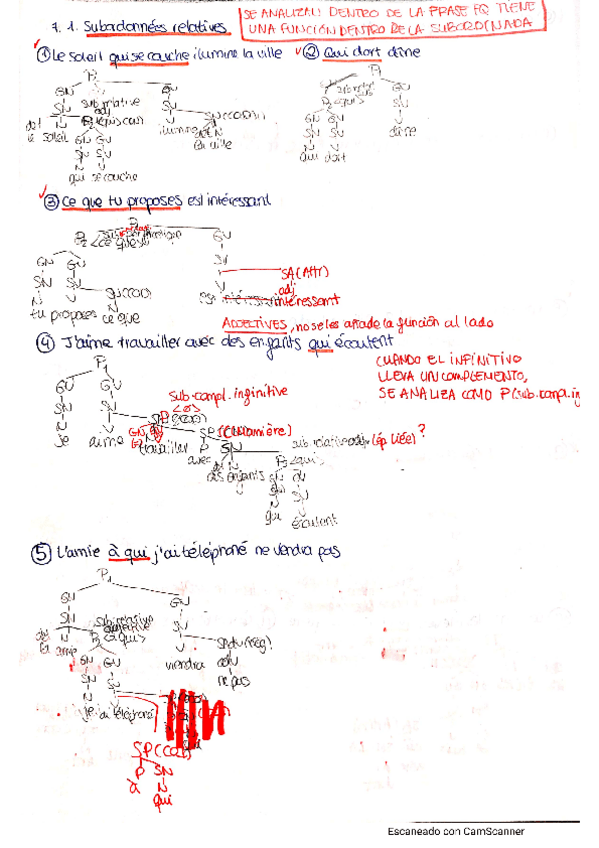 7.1. Subordonnées relatives
SE ANALIZAN DENTRO DE LA PHRASE PQ TIENE
UNA FUNCIÓN DENTRO DE LA SUBORDINADA
① Le soleil qui se couche ilumine la ville
② Qui dort dîne
P₁
P₁
GN
GV
sub relative
adj
GV
SN
SN
SV
SV
le soleil
GN GV
SN SV
N V
qui se couche
ilumine
la ville
GN GV
SN SV
N V
qui dort
dîne
③ Ce que tu proposes est intéressant
P₂ <ce que>
GV
GN GV
SN SV
SV
SA (Attr)
adj
intéressant
N V
tu proposes
ce que
ADJECTIVES, no se les añade la función al lado
④ J'aime travailler avec des enfants qui écoutent
P₁
CUANDO EL INFINITIVO
LLEVA UN COMPLEMENTO,
SE ANALIZA COMO P(sub.compl.in
GN GV
sub compl. infinitive
SN SV
N V
je aime
travailler
SP (CCManière)
P SN
avec
des enfants
sub relative adj (ép. liée)?
P₃ <qui>
SN
SV
N V
qui écoutent
⑤ L'amie à qui j'ai téléphoné ne viendra pas
P₁
GN
GV
SN
SV
sub relative
P₂ <à qui>
la amie
GN GV
SN SV
N V
je ai téléphoné
viendra
SAdv (nég)
adv
ne pas
SP (COI)
P SN
à N
qui
Escaneado con CamScanner